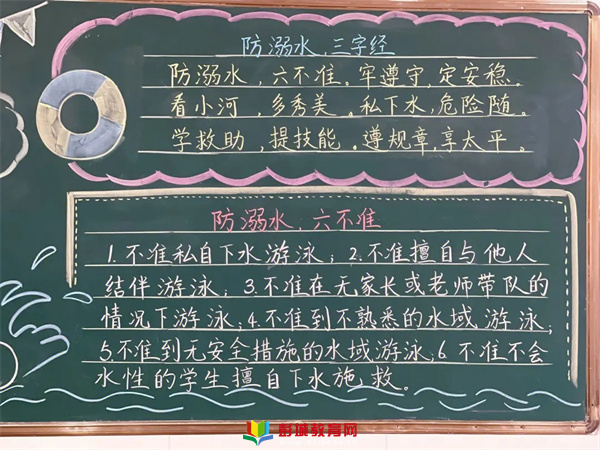 防溺水,三字经
防溺水,六不准。牢遵守,定安稳。
看小河,多秀美。私下水,危险随。
学救助,提技能。遵规章,享太平。
防溺水,六不准
1.不准私自下水游泳;2.不准擅自与他人
结伴游泳;3.不准在无家长或老师带队的
情况下游泳;4.不准到不熟悉的水域游泳;
5.不准到无安全措施的水域游泳;6不准不会
水性的学生擅自下水施救。
彭城教育网